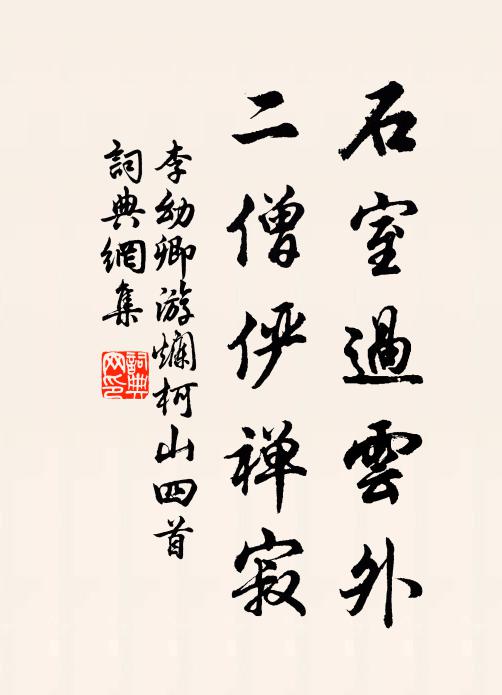 石室過雲外
二僧俨禅寂
李幼卿游爛柯山四首
詞典網集
詞典
网印